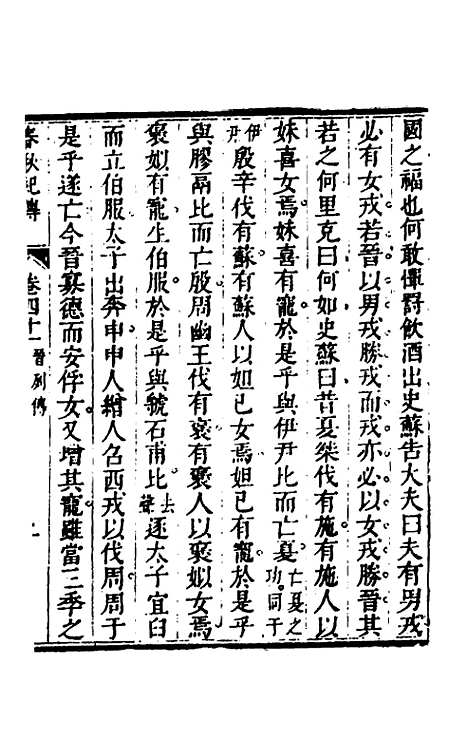 國之福也何敢憚罸飲酒出史蘇告大夫曰夫有男戎
必有女戎若晉以男戎勝戎而戎亦必以女戎勝晉其
若之何里克曰何如史蘇曰昔夏桀伐有施有施人以
妹喜女焉妹喜有寵於是乎與伊尹比而亡夏亡夏之功同于
伊尹殷辛伐有蘇有蘇人以妲己女焉妲己有寵於是乎
與膠鬲比而亡殷周幽王伐有褒有褒人以褒姒女焉
褒姒有寵生伯服於是乎與虢石甫比去聲逐太子宜臼
而立伯服太子出奔申申人繒人召西戎以伐周周于
是乎遂亡今晉寡德而安俘女又增其寵雖當三季之
春秋紀傳 卷四十一 晉列傳